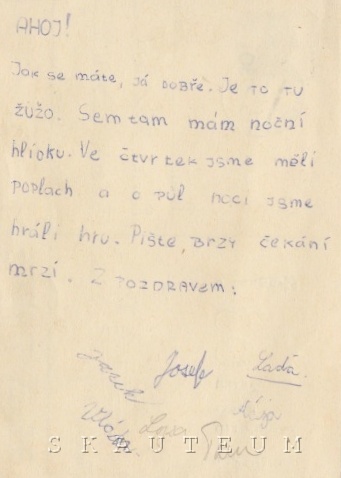 AHOJ!
Jak se máte, já dobře. Je to tu
žůžo. Sem tam mám noční
hlídku. Ve čtvrtek jsme měli
poplach a o půl noci jsme
hráli hru. Pište, brzy čekání
mrzí. Z POZDRAVEM:
Josef Láďa
SKAUTEUM